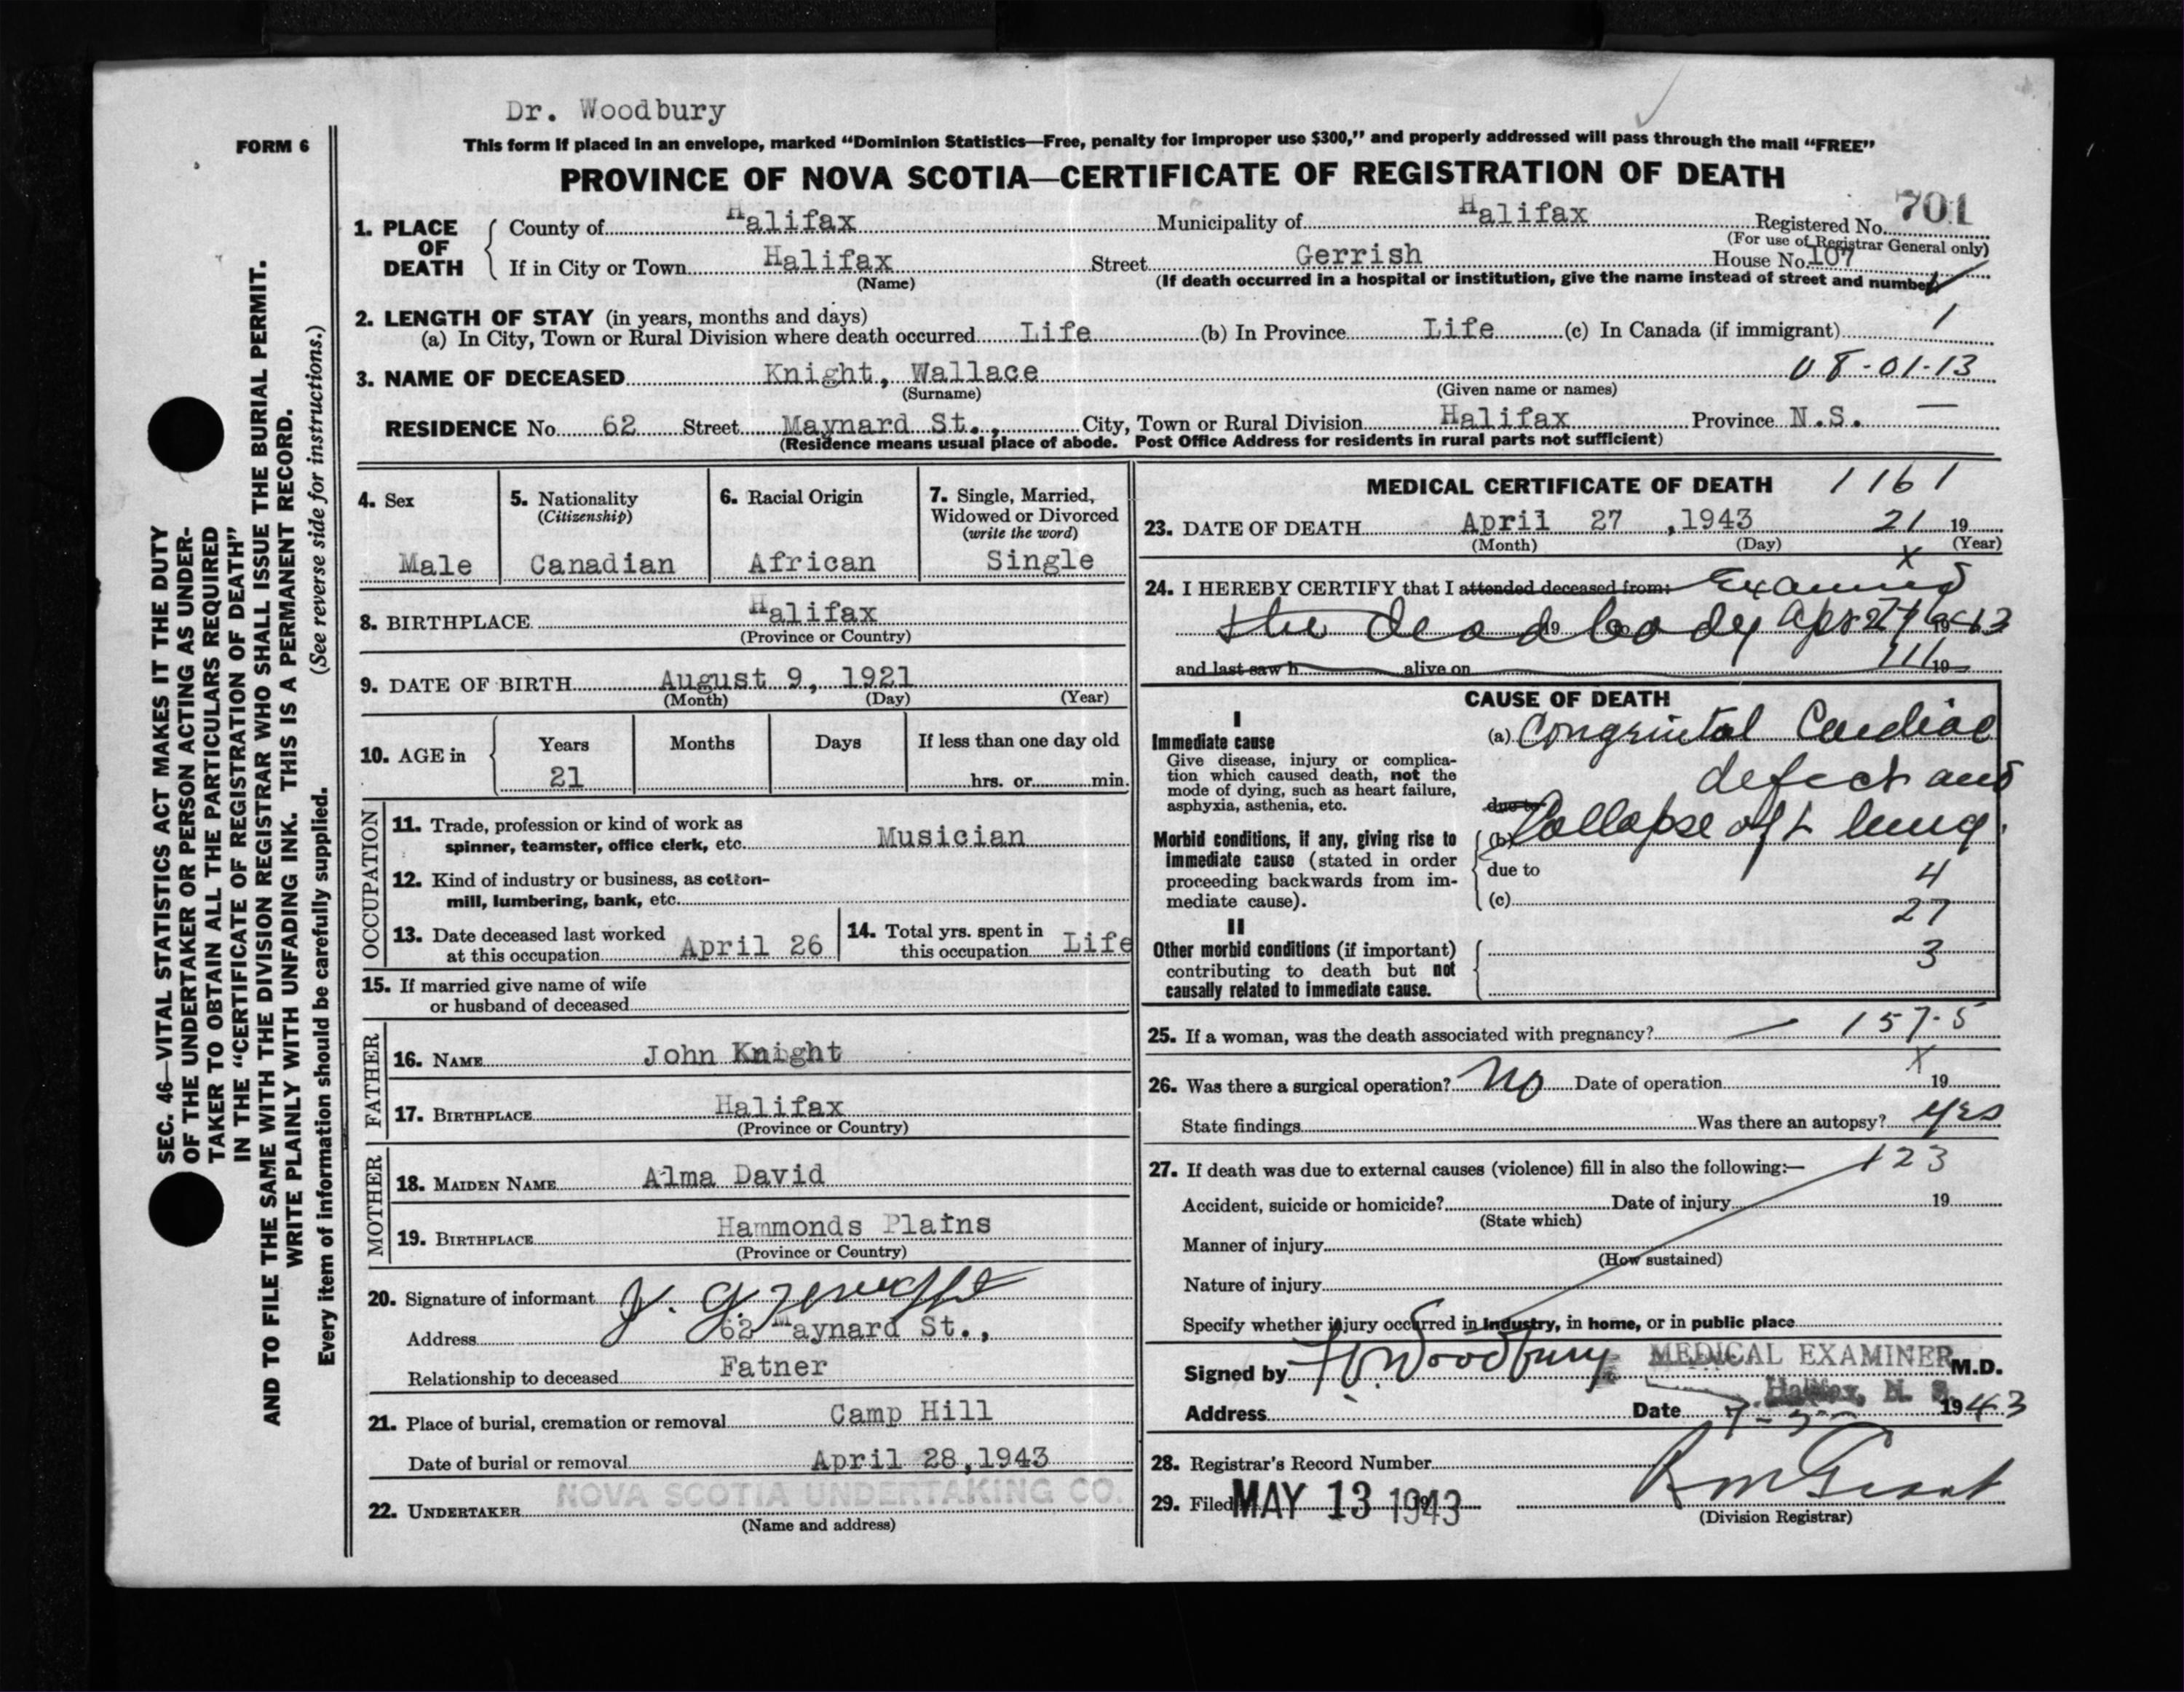 Dr. Woodbury
FORM 6
This form if placed in an envelope, marked “Dominion Statistics—Free, penalty for improper use $300,” and properly addressed will pass through the mail “FREE”
PROVINCE OF NOVA SCOTIA—CERTIFICATE OF REGISTRATION OF DEATH
1. PLACE OF DEATH { County of Halifax Municipality of Halifax Registered No. 701
(For use of Registrar General only)
If in City or Town Halifax Street Gerrish House No. 107
(Name) (If death occurred in a hospital or institution, give the name instead of street and number)
2. LENGTH OF STAY (in years, months and days)
(a) In City, Town or Rural Division where death occurred Life (b) In Province Life (c) In Canada (if immigrant) 1
3. NAME OF DECEASED Knight, Wallace 08-01-13
(Surname) (Given name or names)
RESIDENCE No. 62 Street Maynard St., City, Town or Rural Division Halifax Province N.S. —
(Residence means usual place of abode. Post Office Address for residents in rural parts not sufficient)
4. Sex
Male
5. Nationality
(Citizenship)
Canadian
6. Racial Origin
African
7. Single, Married, Widowed or Divorced
(write the word)
Single
8. BIRTHPLACE Halifax
(Province or Country)
9. DATE OF BIRTH August 9, 1921
(Month) (Day) (Year)
10. AGE in { Years Months Days If less than one day old
21 hrs. or min.
OCCUPATION
11. Trade, profession or kind of work as
spinner, teamster, office clerk, etc. Musician
12. Kind of industry or business, as cotton-
mill, lumbering, bank, etc.
13. Date deceased last worked
at this occupation April 26
14. Total yrs. spent in
this occupation Life
15. If married give name of wife
or husband of deceased
FATHER
16. NAME John Knight
17. BIRTHPLACE Halifax
(Province or Country)
MOTHER
18. MAIDEN NAME Alma David
19. BIRTHPLACE Hammonds Plains
(Province or Country)
20. Signature of informant
Address 62 Maynard St.,
Relationship to deceased Fatner
21. Place of burial, cremation or removal Camp Hill
Date of burial or removal April 28, 1943
22. UNDERTAKER NOVA SCOTIA UNDERTAKING CO.
(Name and address)
MEDICAL CERTIFICATE OF DEATH 1161
23. DATE OF DEATH April 27 ,1943 21 19
(Month) (Day) (Year)
X
24. I HEREBY CERTIFY that I attended deceased from: Examined
the dead body 1943
and last saw h alive on 19
CAUSE OF DEATH
I
Immediate cause
Give disease, injury or complica-
tion which caused death, not the
mode of dying, such as heart failure,
asphyxia, asthenia, etc.
(a) Congenital Cardiac
defect and
due to
Morbid conditions, if any, giving rise to
immediate cause (stated in order
proceeding backwards from im-
mediate cause).
(b) Collapse of L lung.
due to 4
(c) 27
II
Other morbid conditions (if important)
contributing to death but not
causally related to immediate cause.
3
25. If a woman, was the death associated with pregnancy? — 157-5
X
26. Was there a surgical operation? No Date of operation 19
State findings Was there an autopsy? yes
27. If death was due to external causes (violence) fill in also the following:— 123
Accident, suicide or homicide? Date of injury 19
(State which)
Manner of injury
(How sustained)
Nature of injury
Specify whether injury occurred in industry, in home, or in public place
Signed by Woodbury MEDICAL EXAMINER M.D.
Halifax, N. S.
Address Date 1943
28. Registrar's Record Number
29. Filed MAY 13 1943 Grant
(Division Registrar)
SEC. 46—VITAL STATISTICS ACT MAKES IT THE DUTY
OF THE UNDERTAKER OR PERSON ACTING AS UNDER-
TAKER TO OBTAIN ALL THE PARTICULARS REQUIRED
IN THE “CERTIFICATE OF REGISTRATION OF DEATH”
AND TO FILE THE SAME WITH THE DIVISION REGISTRAR WHO SHALL ISSUE THE BURIAL PERMIT.
WRITE PLAINLY WITH UNFADING INK. THIS IS A PERMANENT RECORD.
Every item of information should be carefully supplied. (See reverse side for instructions.)